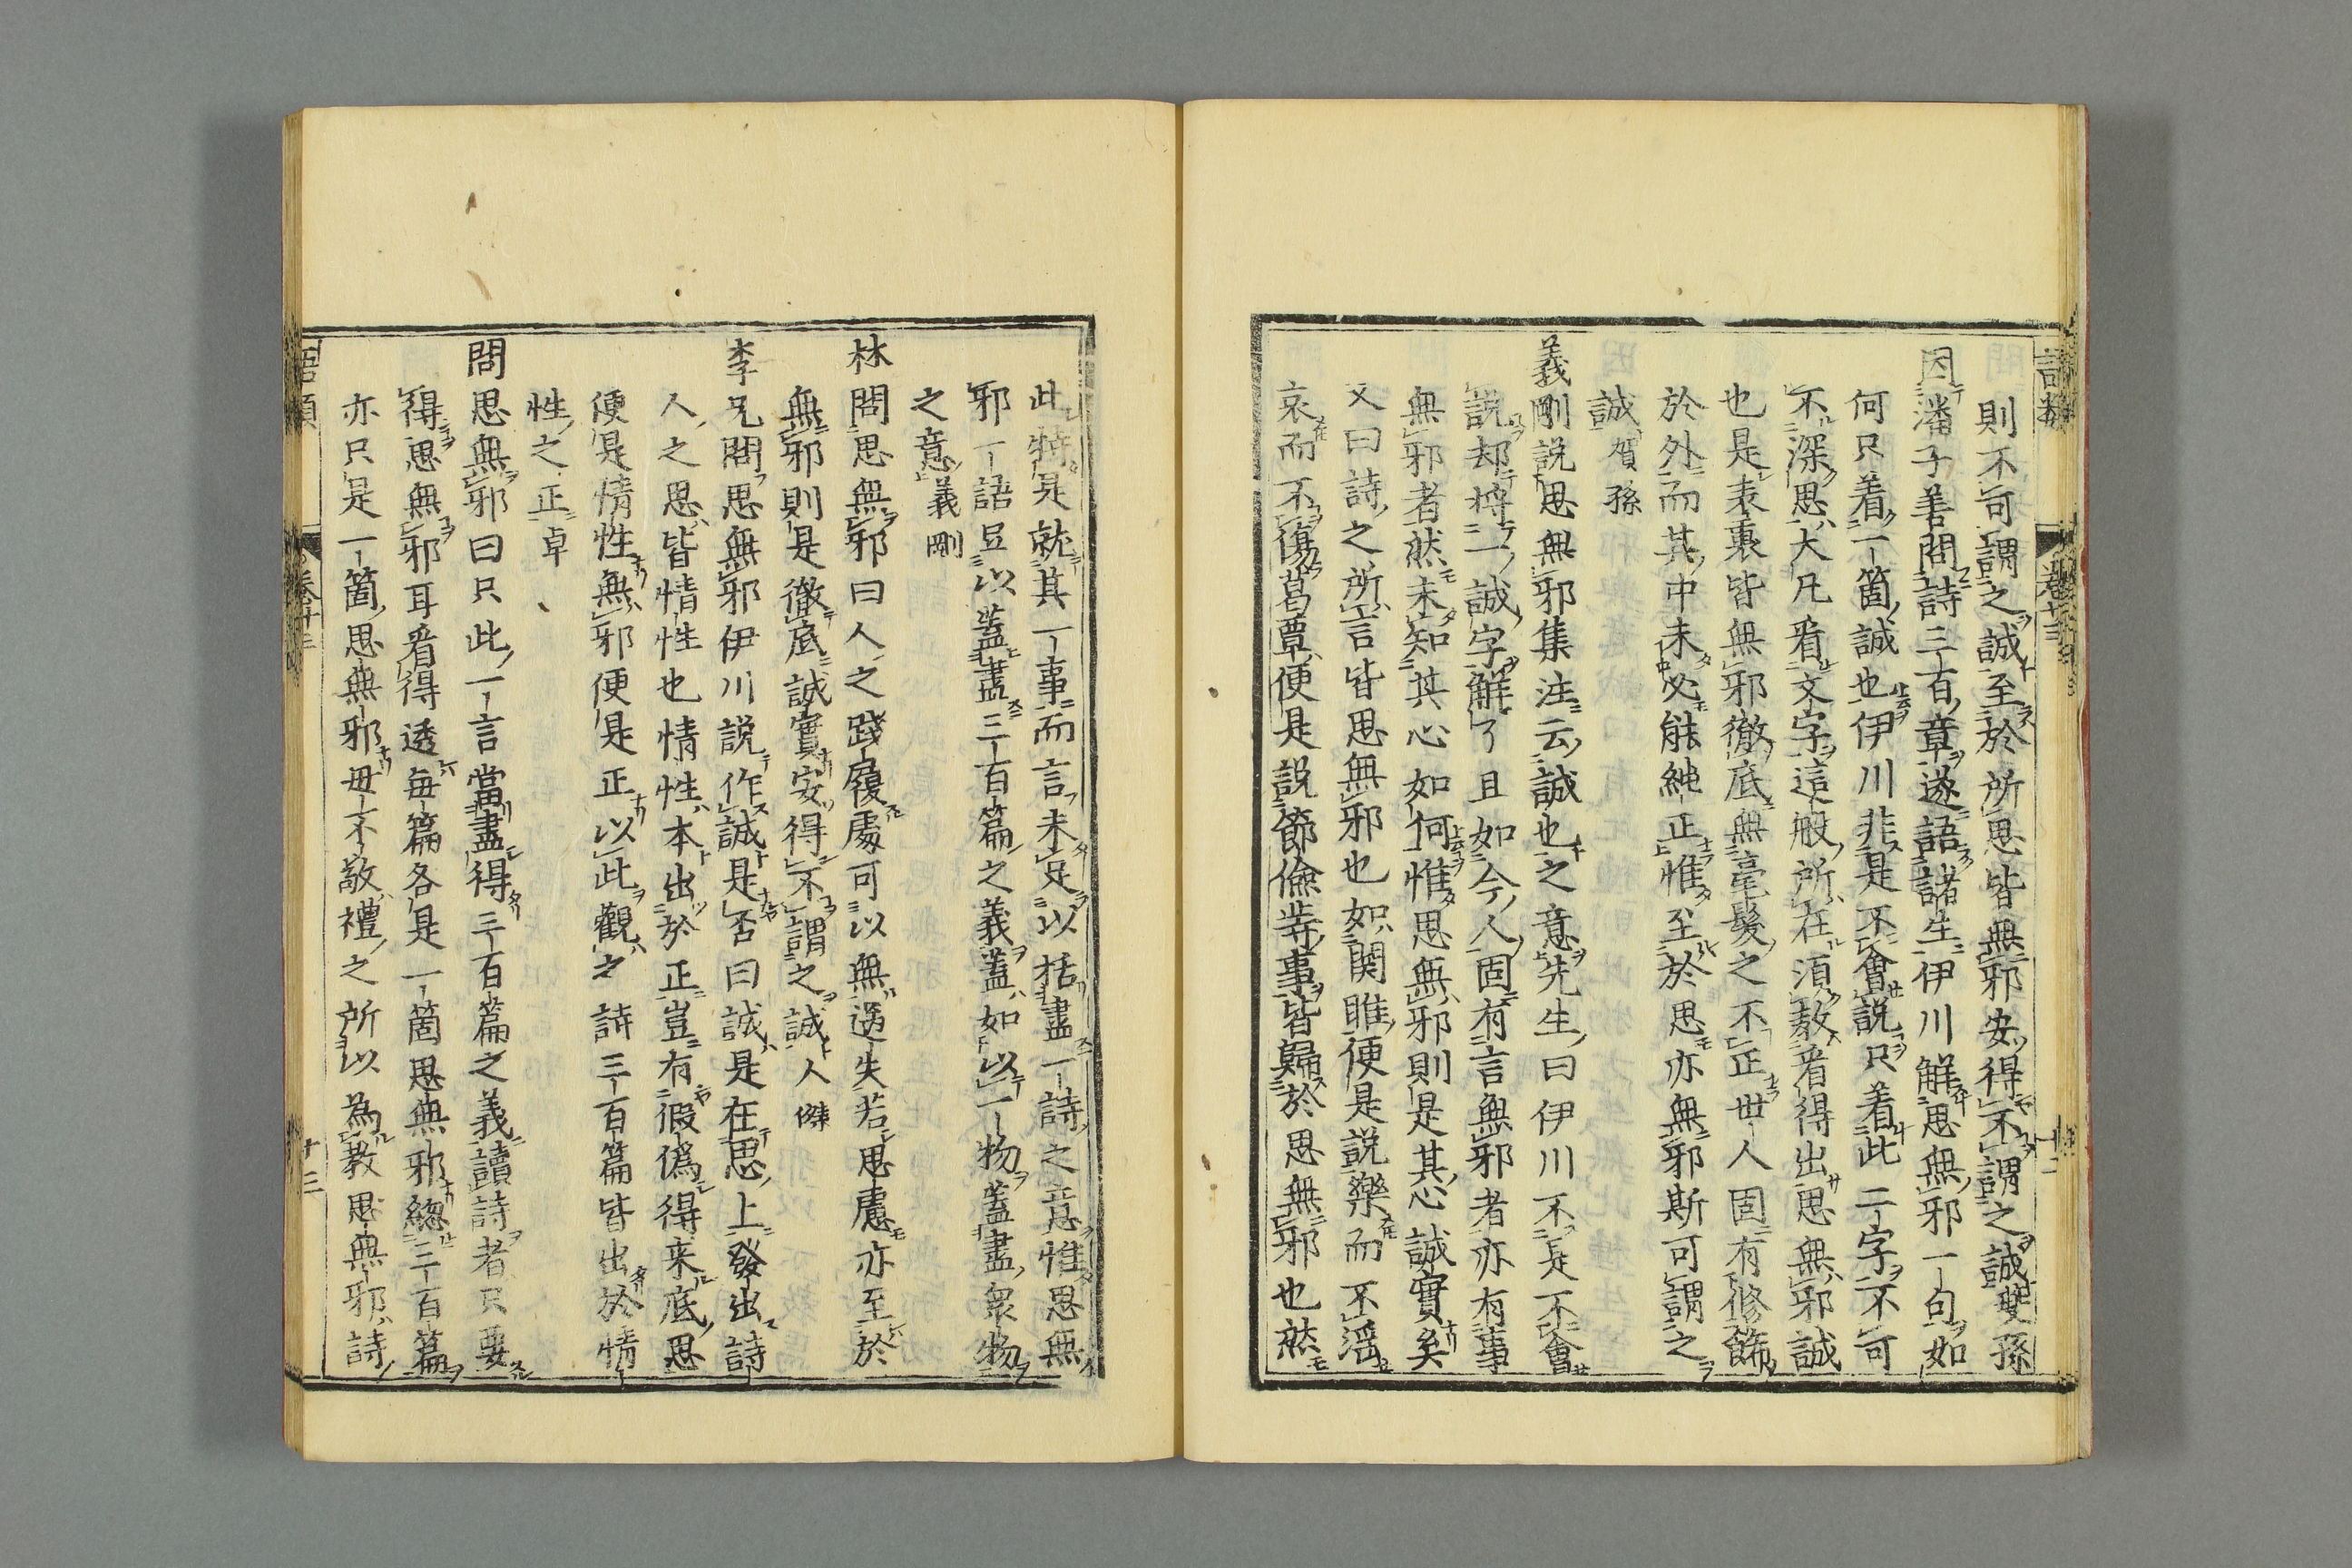 則不可謂之誠至於所思皆無邪安得不謂之誠㽦孫
因潘子善問詩三百章遂語諸生伊川解思無邪一句如
何只着一箇誠也伊川非是不會説只着此二字不可
不深思大凡看文字這般所在須教看得出思無邪誠
也是表裏皆無邪徹底無毫髮之不正世人固有修飾
於外而其中未必能純正惟至於思亦無邪斯可謂之
誠賀孫
義剛説思無邪集注云誠也之意先生曰伊川不是不會
説却將一誠字解了且如今人固有言無邪者亦有事
無邪者然未知其心如何惟思無邪則是其心誠實矣
又曰詩之所言皆思無邪也如関雎便是説樂而不滛
哀而不傷葛覃便是説節儉等事皆歸於思無邪也然
此特是就其一事而言未足以括盡一詩之意惟思無
邪一語足以蓋盡三百篇之義蓋如以一物蓋盡衆物
之意義剛
林問思無邪曰人之踐履處可以無過失若思慮亦至於
無邪則是徹底誠實安得不謂之誠人傑
李兄問思無邪伊川説作誠是否曰誠是在思上發出詩
人之思皆情性也情性本出於正豈有假偽得来底思
便是情性無邪便是正以此觀之詩三百篇皆出於情
性之正卓
問思無邪曰只此一言當盡得三百篇之義讀詩者只要
得思無邪耳看得透每篇各是一箇思無邪緫三百篇
亦只是一箇思無邪毋不敬禮之所以為教思無邪詩
語類
卷廿三
十三